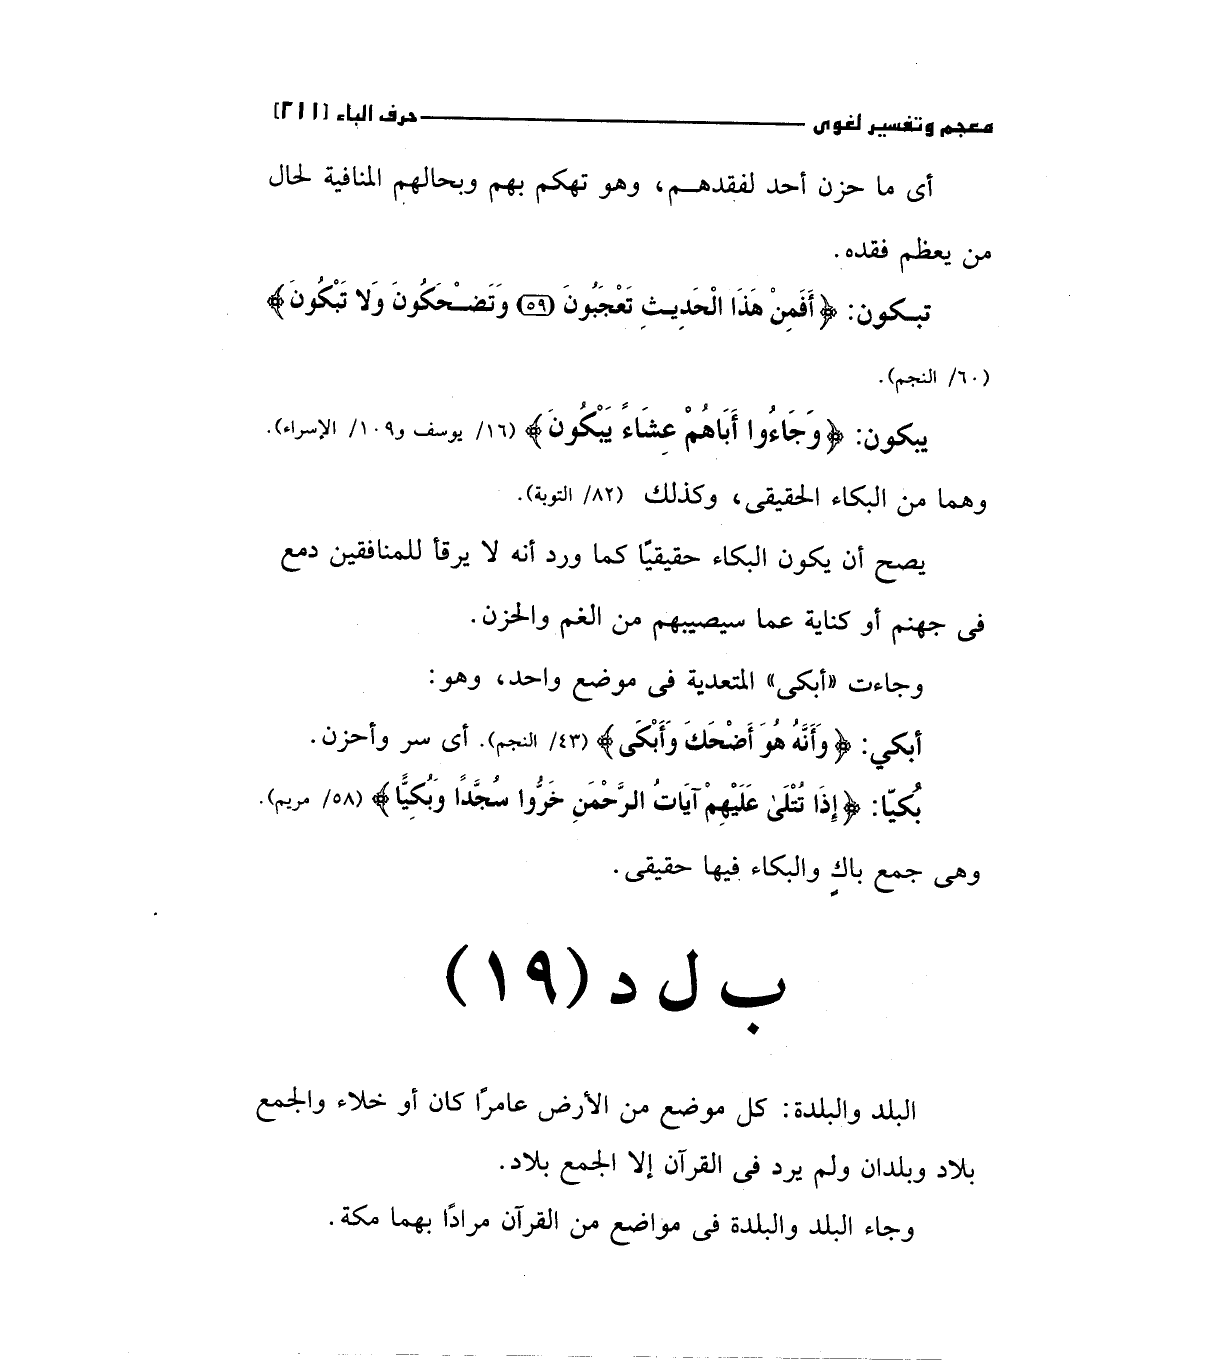 معجم وتفسير لغوى حرف الباء [٢١١]
أى ما حزن أحد لفقدهم، وهو تهكم بهم وبحالهم المنافية لحال
من يعظم فقده.
تبكون: ﴿أَفَمِنْ هَذَا الْحَدِيثِ تَعْجَبُونَ (٥٩) وَتَضْحَكُونَ وَلا تَبْكُونَ﴾
(٦٠/ النجم).
يبكون: ﴿وَجَاءُوا أَبَاهُمْ عِشَاءً يَبْكُونَ﴾ (١٦/ يوسف و١٠٩/ الإسراء).
وهما من البكاء الحقيقى، وكذلك (٨٢/ التوبة).
يصح أن يكون البكاء حقيقيًا كما ورد أنه لا يرقأ للمنافقين دمع
فى جهنم أو كناية عما سيصيبهم من الغم والحزن.
وجاءت «أبكى» المتعدية فى موضع واحد، وهو:
أبكي: ﴿وَأَنَّهُ هُوَ أَضْحَكَ وَأَبْكَى﴾ (٤٣/ النجم). أى سر وأحزن.
بُكيّا: ﴿إِذَا تُتْلَىٰ عَلَيْهِمْ آيَاتُ الرَّحْمَنِ خَرُّوا سُجَّدًا وَبُكِيًّا﴾ (٥٨/ مريم).
وهى جمع باكٍ والبكاء فيها حقيقى.
ب ل د (١٩)
البلد والبلدة: كل موضع من الأرض عامرًا كان أو خلاء والجمع
بلاد وبلدان ولم يرد فى القرآن إلا الجمع بلاد.
وجاء البلد والبلدة فى مواضع من القرآن مرادًا بهما مكة.